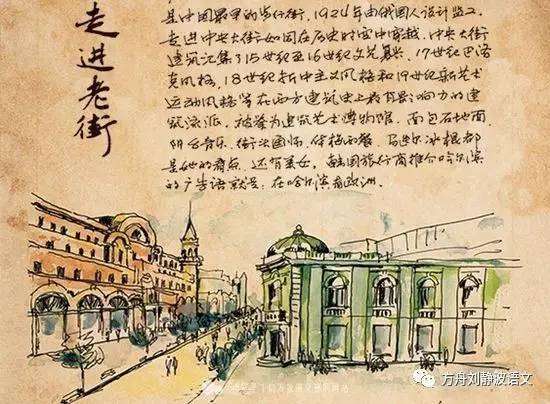 走进老街
是中国最早的步行街，1924年由俄国人设计监工
走进中央大街如同在历史时空中穿越，中央大街
建筑汇集了15世纪至16世纪文艺复兴，17世纪巴洛
克风格，18世纪折中主义风格和19世纪新艺术
运动风格等在西方建筑史上最有影响力的建
筑流派，被誉为建筑艺术博物馆，面包石地面
阳台音乐，街头画师，俄格西餐，马迭尔冰棍都
是她的看点，还有美女，韩国旅行商推介哈尔滨
的广告语就是：在哈尔滨看欧洲。
方舟刘静波语文